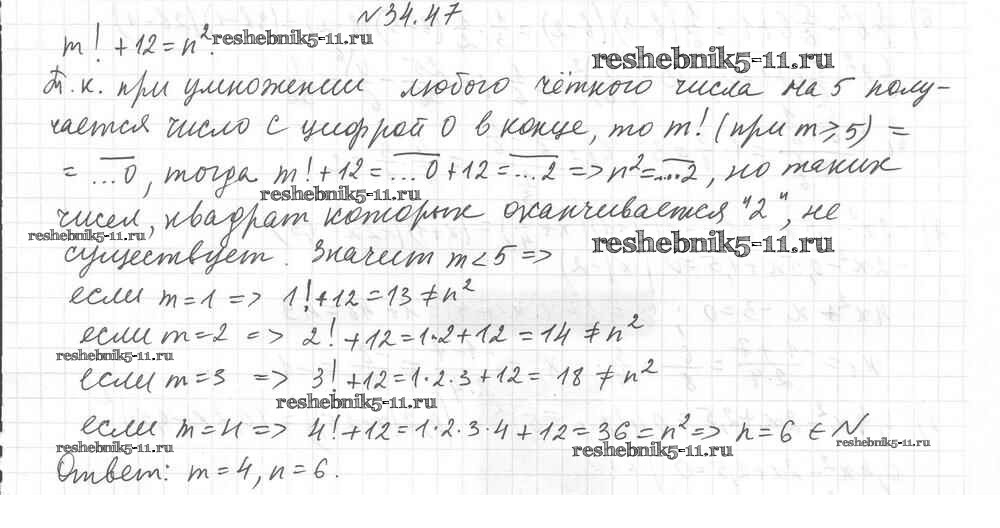 №34.47
m! + 12 = n². reshebnik5-11.ru
reshebnik5-11.ru
Т.к. при умножении любого чётного числа на 5 полу-
чается число с цифрой 0 в конце, то m! (при m ≥ 5) =
= ...0, тогда m! + 12 = ...0 + 12 = ...2 => n² = ...2, но таких
reshebnik5-11.ru
чисел, квадрат которых оканчивается "2", не
reshebnik5-11.ru
reshebnik5-11.ru
существует. Значит m < 5 =>
если m = 1 => 1! + 12 = 13 ≠ n²
если m = 2 => 2! + 12 = 1·2 + 12 = 14 ≠ n²
reshebnik5-11.ru
если m = 3 => 3! + 12 = 1·2·3 + 12 = 18 ≠ n²
reshebnik5-11.ru
если m = 4 => 4! + 12 = 1·2·3·4 + 12 = 36 = n² => n = 6 ∈ N
reshebnik5-11.ru
reshebnik5-11.ru
reshebnik5-11.ru
Ответ: m = 4, n = 6.